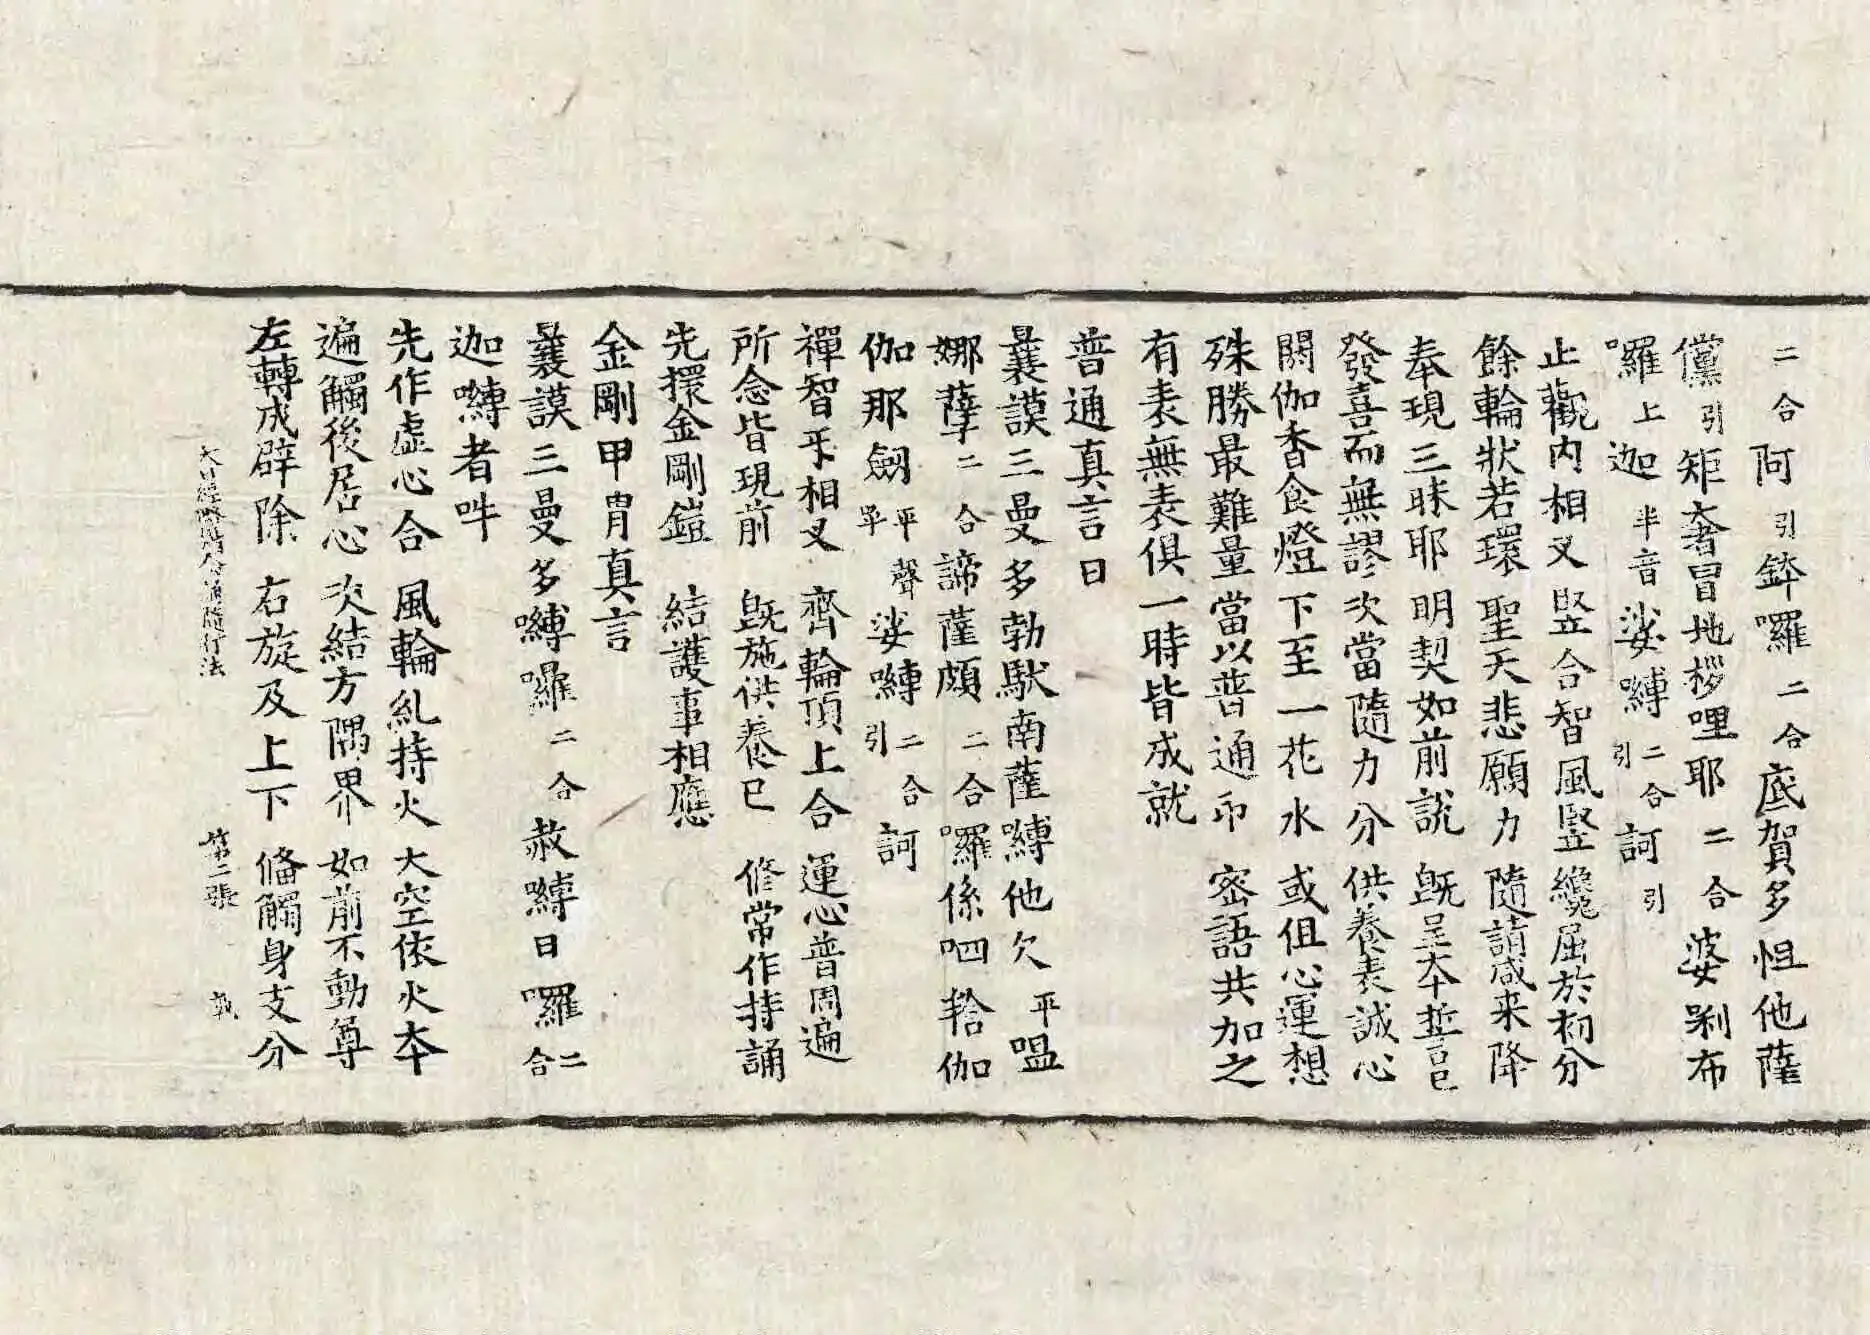 二合阿引鉢囉二合底賀多怛他薩
儻引矩奢冒地拶哩耶二合婆剁布
囉上迦半音娑嚩二合引訶引
止觀內相叉 竪合智風竪 纔屈於初分
餘輪狀若環 聖天悲願力 隨請咸来降
奉現三昧耶 明契如前說 既呈本誓已
發喜而無謬 次當隨力分 供養表誠心
閼伽香食燈 下至一花水 或伹心運想
殊勝最難量 當以普通印 密語共加之
有表無表俱 一時皆成就
普通真言曰
曩謨三曼多勃馱南薩嚩他欠平嗢
娜孽二合諦薩頗二合囉係呬𤚥伽
伽那劒平聲單娑嚩二合引訶
禪智互相叉 齊輪頂上合 運心普周遍
所念皆現前 既施供養已 修常作持誦
先擐金剛鎧 結護事相應
金剛甲胄真言
曩謨三曼多嚩囉二合赧嚩日囉二合
迦嚩者吽
先作虛心合 風輪糺持火 大空依火本
遍觸後居心 次結方隅界 如前不動尊
左轉成辟除 右旋及上下 俻觸身支分
大日經略攝念誦隨行法 第二張